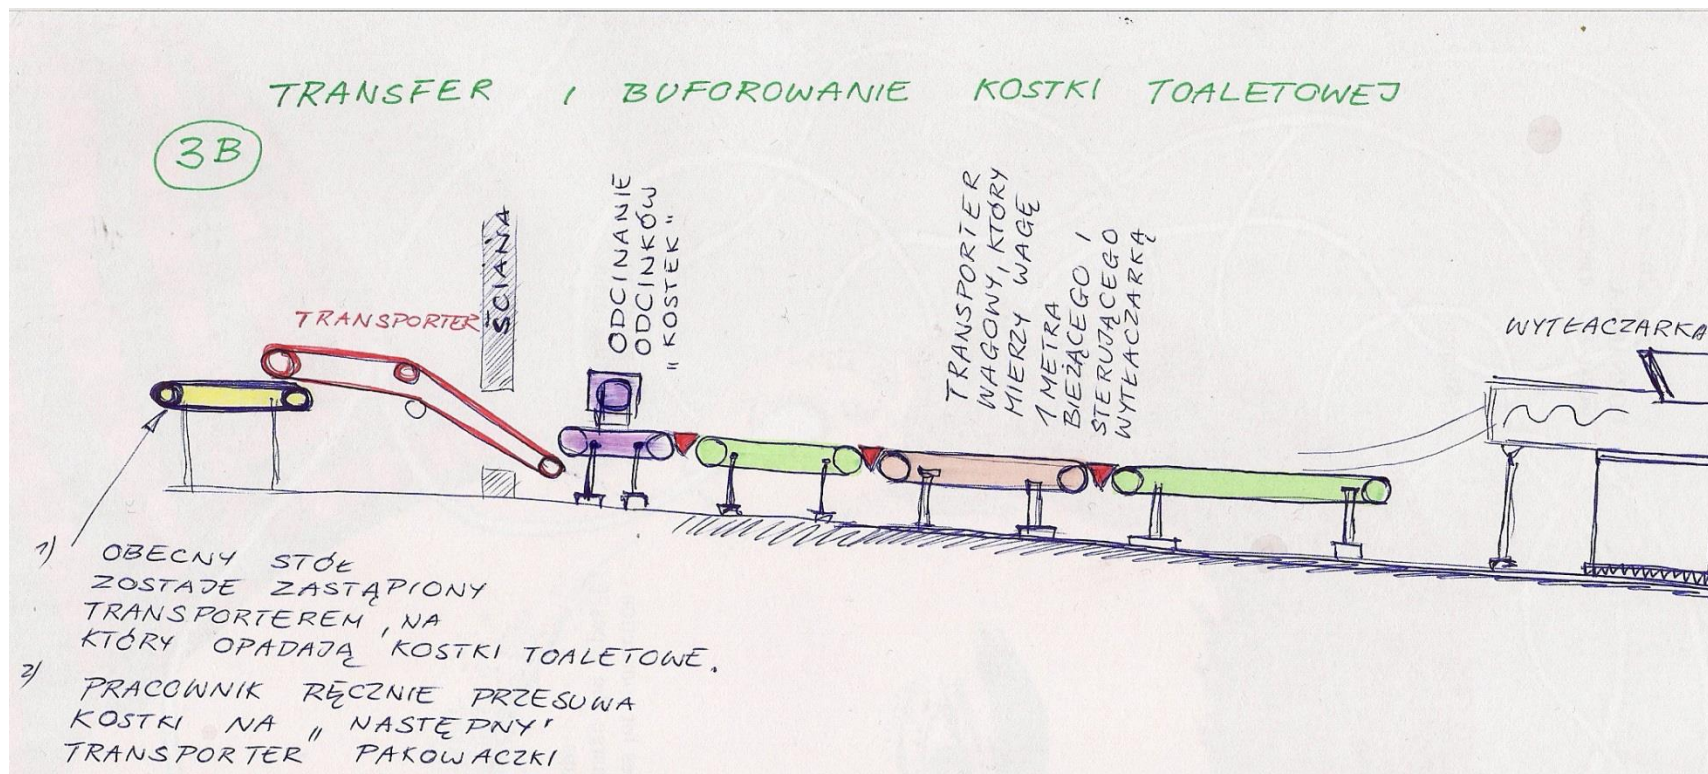 TRANSFER I BUFOROWANIE KOSTKI TOALETOWEJ
3B
TRANSPORTER
ŚCIANA
ODCINANIE
ODCINKÓW
„KOSTEK"
TRANSPORTER
WAGOWY, KTÓRY
MIERZY WAGĘ
1 METRA
BIEŻĄCEGO I
STERUJĄCEGO
WYTŁACZARKĄ
WYTŁACZARKA
1) OBECNY STÓŁ
ZOSTAJE ZASTĄPIONY
TRANSPORTEREM, NA
KTÓRY OPADAJĄ KOSTKI TOALETOWE.
2) PRACOWNIK RĘCZNIE PRZESUWA
KOSTKI NA „NASTĘPNY"
TRANSPORTER PAKOWACZKI